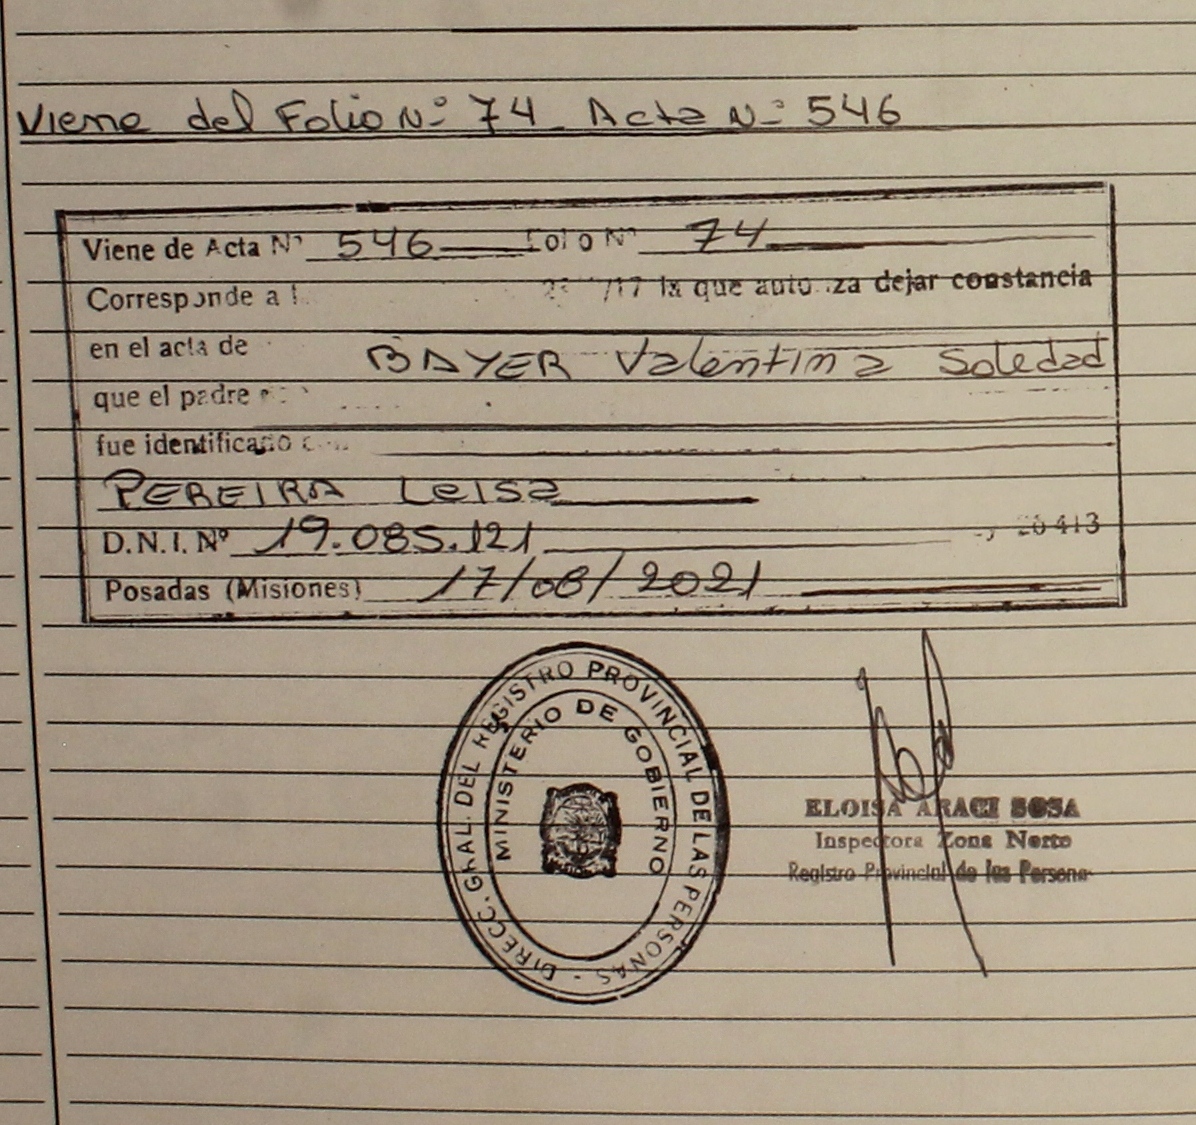 Viene del Folio Nº 74 Acta Nº 546
Viene de Acta Nº 546 Folio Nº 74
Corresponde a l /17 la que autoriza dejar constancia
en el acta de BAYER Valentina Soledad
que el padre
fue identificado
PEREIRA Leisa
D.N.I. Nº 19.085.121
Posadas (Misiones) 17/08/2021
DIRECC. GRAL. DEL REGISTRO PROVINCIAL DE LAS PERSONAS -
MINISTERIO DE GOBIERNO
ELOISA ARACI SOSA
Inspectora Zona Norte
Registro Provincial de las Persona